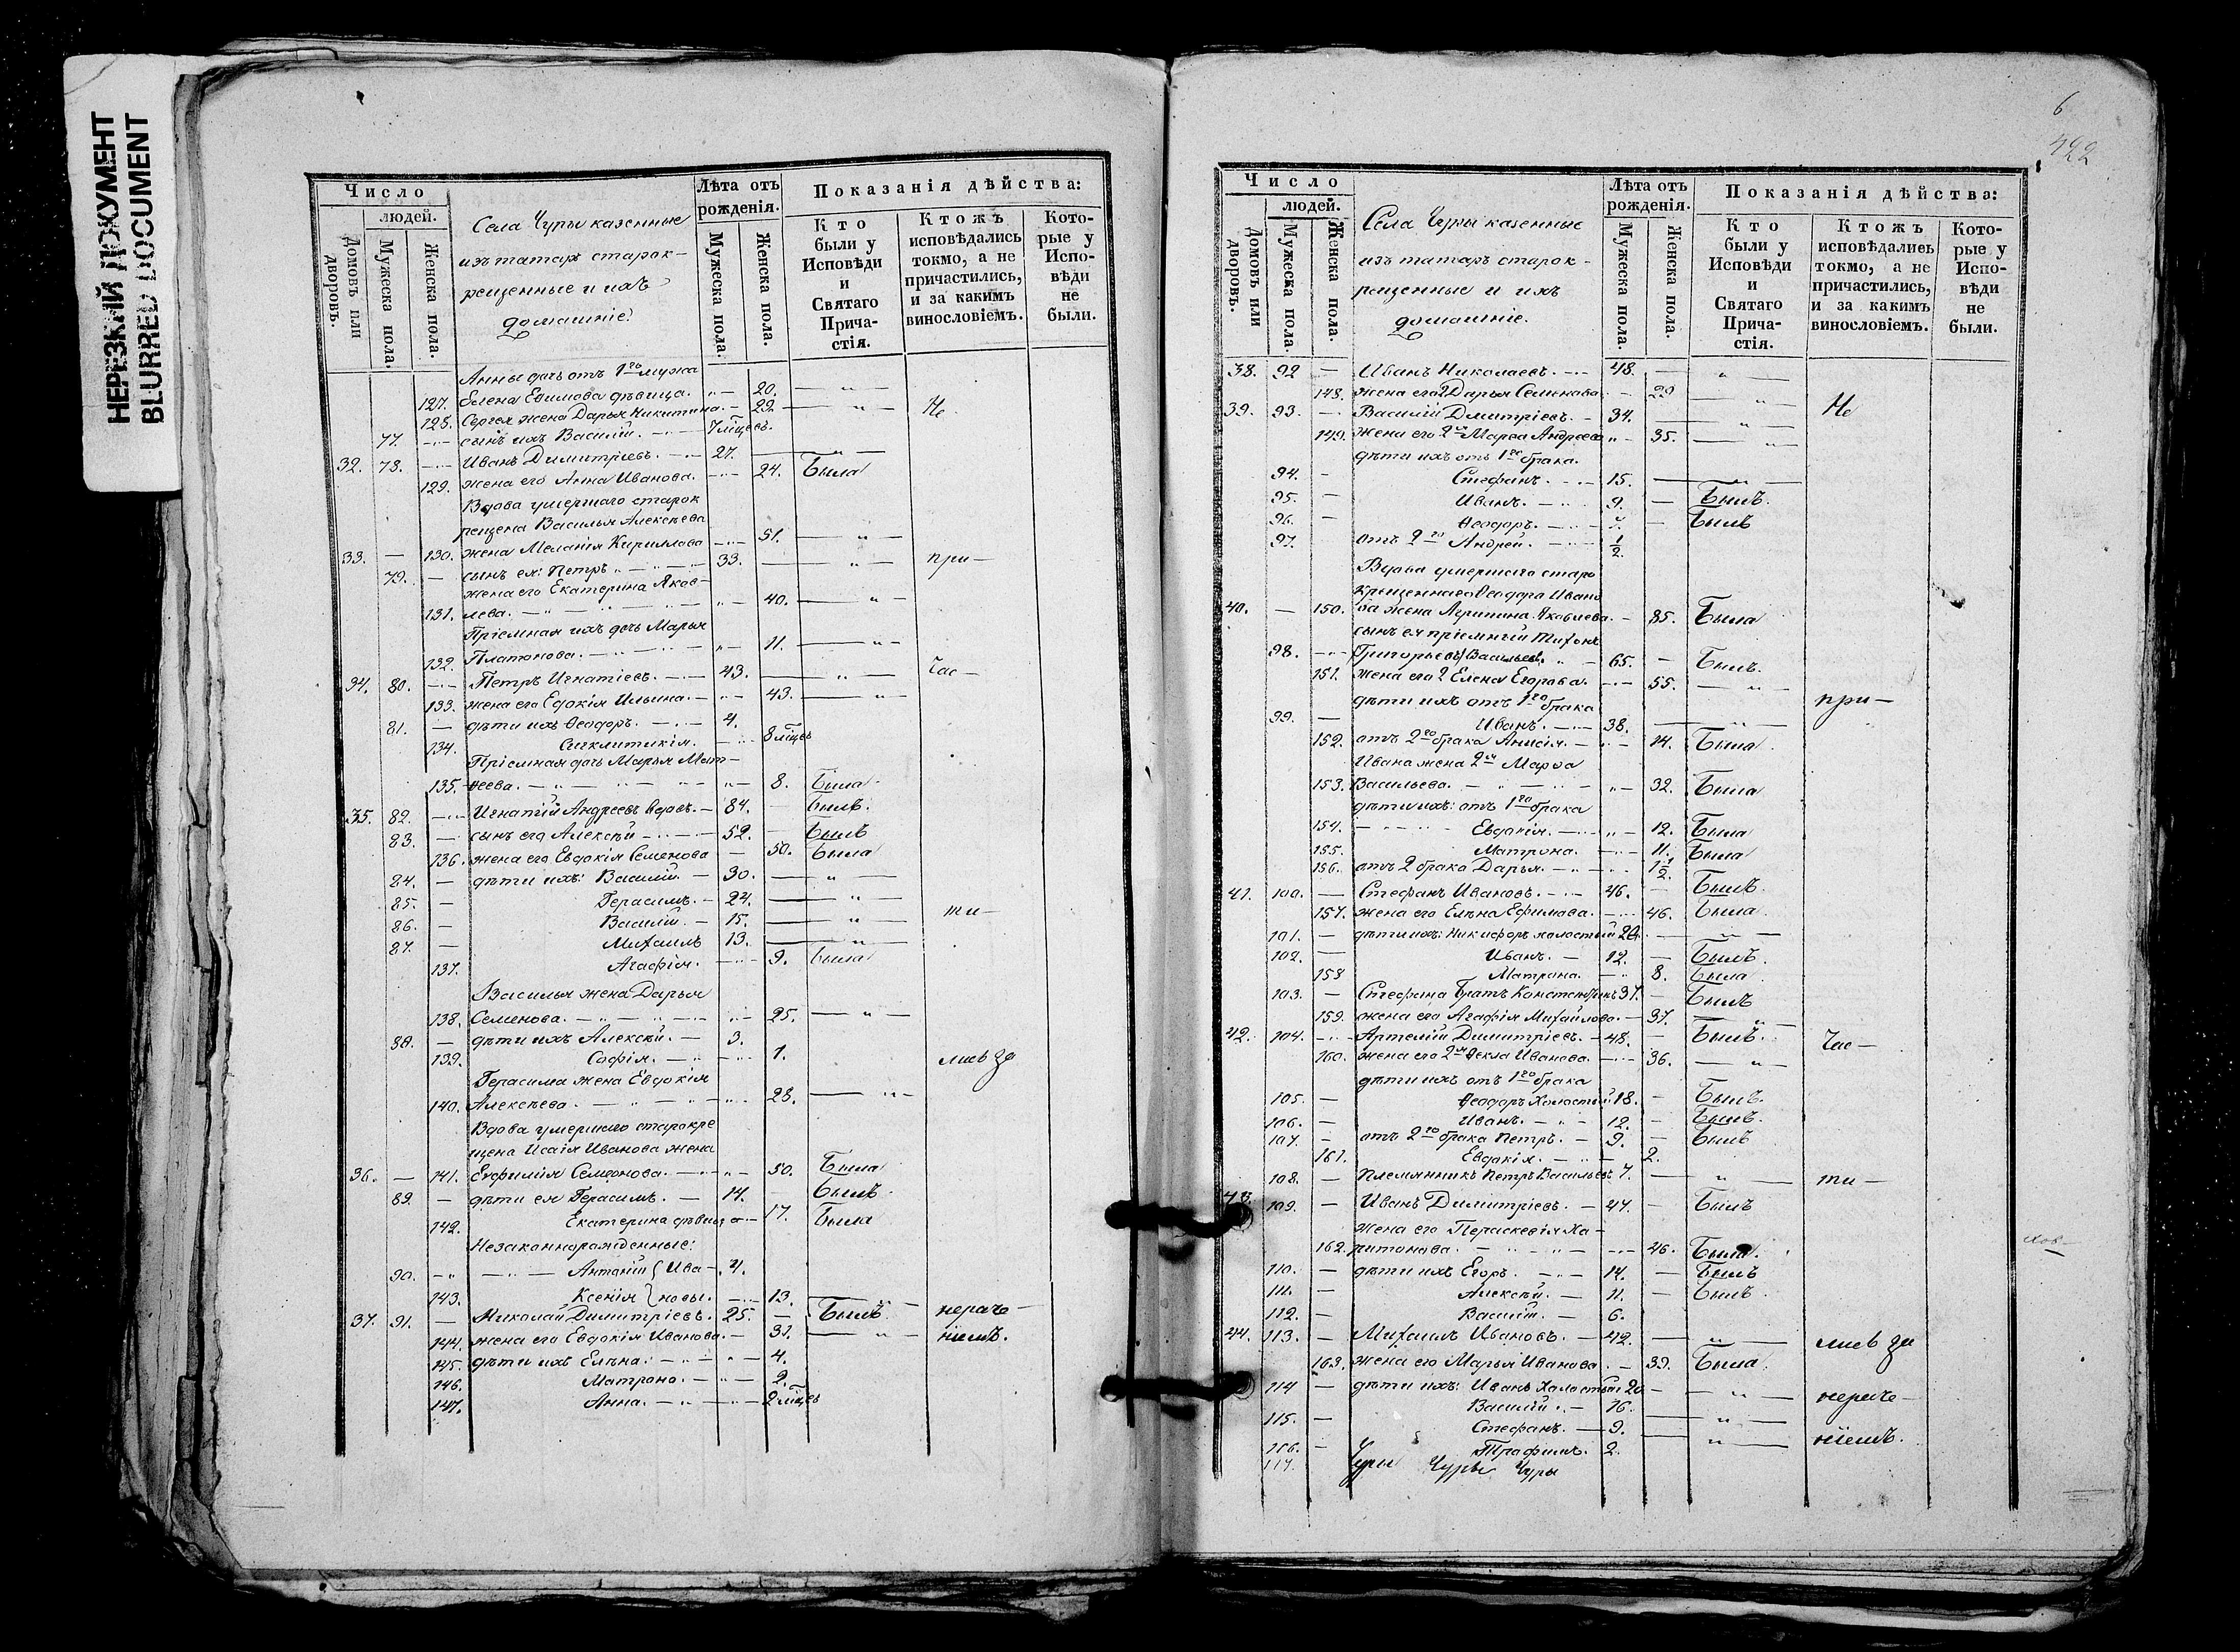 НЕРЕЗКИЙ ДОКУМЕНТ
BLURRED DOCUMENT
Число
людей.
Домовъ или дворовъ.
Мужеска пола.
Женска пола.
Села Чуры казенные
изъ татаръ старок-
рещенные и ихъ
домашніе.
Лѣта отъ рожденія.
Мужеска пола.
Женска пола.
Показанія дѣйства:
Кто были у Исповѣди и Святаго Прича-стія.
Ктожъ исповѣдались токмо, а не причастились, и за какимъ винословіемъ.
Кото-рые у Испо-вѣди не были.
Анны дочь отъ 1го мужа
127. Елена Ефимова дѣвица. 20.
128. Сергея жена Дарья Никитина. 29. Не
77. сынъ ихъ Василій. 7 мѣцевъ.
32. 78. Иванъ Димитріевъ. 27.
129. жена его Анна Иванова. 24. Была
Вдова умершаго старок
рещена Василья Алексѣева
33. — 130. жена Меланія Кириллова 51.
79. — сынъ ея: Петръ 33. при—
жена его Екатерина Яков-
131. лева. 40.
Пріемная ихъ дочь Марья
132. Платонова. 11.
34. 80. Петръ Игнатіевъ. 43. час—
133. жена его Евдокія Ильина. 43.
81. — дѣти ихъ Ѳеодоръ. 4.
134. Синклитикія. 8 мѣцевъ
Пріемная дочь Марья Мат-
135. ѳеева. 8. Была
35. 82. Игнатій Андреевъ вдовъ. 84. былъ.
83. — сынъ его Алексѣй 52. Былъ
136. жена его Евдокія Семенова 50. была
84. — дѣти ихъ: Василій. 30.
85. — Герасимъ. 24.
86. — Василій. 15. ти—
87. — Михаилъ 13.
137. Агафія. 9. была
Василья жена Дарья
138. Семенова. 25.
88. — дѣти ихъ Алексѣй. 3.
139. Софія. 1. лись за
Герасима жена Евдокія
140. Алексѣева. 28.
Вдова умершаго старокре
щена Исаія Иванова жена
36. — 141. Евфимія Семенова. 50. Была
89. — дѣти ея Герасимъ. 14. былъ.
142. Екатерина дѣвица 17. Была
Незаконнорожденные:
90. Антоній { Ива- 4.
143. Ксенія } новы. 13.
37. 91. — Николай Димитріевъ. 25. Былъ. нераче—
144. жена его Евдокія Иванова. 31. ніемъ.
145. дѣти ихъ Елена. 4.
146. Матрона. 2.
147. Анна. 2 мѣцев
6
422
Число
людей.
Домовъ или дворовъ.
Мужеска пола.
Женска пола.
Села Чуры казенные
изъ татаръ старок-
рещенные и ихъ
домашніе.
Лѣта отъ рожденія.
Мужеска пола.
Женска пола.
Показанія дѣйства:
Кто были у Исповѣди и Святаго Прича-стія.
Ктожъ исповѣдались токмо, а не причастились, и за какимъ винословіемъ.
Кото-рые у Испо-вѣди не были.
38. 92 — Иванъ Николаевъ. 48.
148. жена его 2 Дарья Семенова. 29
39. 93. Василій Димитріевъ. 34. Не
149. жена его 2я Марѳа Андреева 35.
дѣти ихъ отъ 1го брака.
94. — Стефанъ. 15.
95. — Иванъ. 9. Былъ.
96. — Ѳеодоръ. Былъ
97. отъ 2го Андрей. 1/2
Вдова умершаго старо
крещеннаго Ѳеодора Ивано
40. — 150. ва жена Агрипина Яковлева. 85. Была
сынъ ея пріемный Тихонъ
98. Григорьевъ/Васильевъ. 65. Былъ.
151. жена его 2 Елена Егорова. 55.
дѣти ихъ отъ 1го брака при—
99. — Иванъ. 38.
152. отъ 2го брака Анисія. 14. Была
Ивана жена 2я Марѳа
153. Васильева. 32. Была
дѣти ихъ: отъ 1го брака
154. Евдокія. 12. Была
155. Матрона. 11. Была
156. отъ 2 брака Дарья. 1 1/2.
41. 100. — Стефанъ Ивановъ. 46. Былъ.
157. жена его Елѣна Ефимова. 46. была.
101. — дѣти ихъ: Никифоръ холостый 20.
102. — Иванъ. 12. Былъ.
158 Матрона. 8. Была
103. — Стефана братъ Константинъ 37. Былъ
159. жена его Агафія Михайлова. 37.
42. 104. Артемій Димитріевъ. 48. Былъ. Час—
160. жена его 2я Ѳекла Иванова. 36.
дѣти ихъ отъ 1го брака
105. — Ѳеодоръ Холостый 18. Былъ.
106. — Иванъ. 12. Былъ.
107. — отъ 2го брака Петръ. 9. Былъ
161. Евдокія. 2.
108. — Племянникъ Петръ Васильевъ 7. ти—
43. 109. — Иванъ Димитріевъ. 47. Былъ
жена его Пераскевія Ха-
162. ритонова. 46. Была.
110. — дѣти ихъ Егоръ. 14. Былъ
111. — Алексѣй 11. Былъ.
112. — Василій. 6.
44. 113. — Михаилъ Ивановъ. 42. лись за
163. жена его Марья Иванова 39. Была.
114 — дѣти ихъ: Иванъ Холостый 20 нераче—
115. — Василій. 16.
116. — Стефанъ. 9. ніемъ.
117. Трофимъ. 2.
Чуры Чуры Чуры